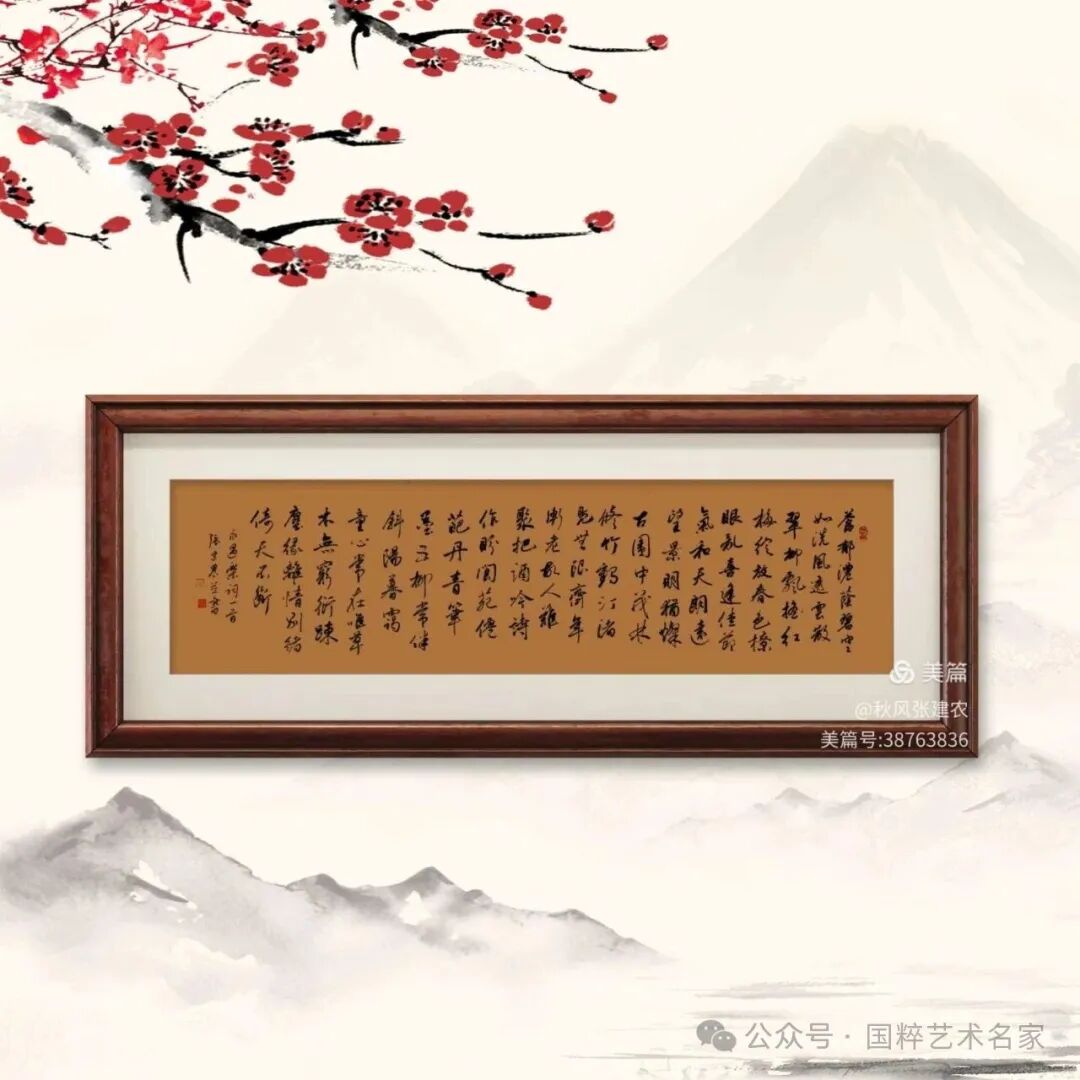 蒼郁濃蔭碧空
如洗風遠雲散
翠柳飄搖紅
梅綻放春色撩
眼亂喜逢佳節
氣和天朗遠
望景明猶燦
古園中茂林
修竹鶴汀渚
無限齊年
漸老故人難
聚把酒吟詩
作畫閬苑倦
葩丹青筆
墨五柳常伴
斜陽暮靄
童心常在唯草
木無窮衍
塵緣離情別緒
倚天不斷
永遇樂詞一首
張
美篇
@秋风张建农
美篇号:38763836
公众号·国粹艺术名家